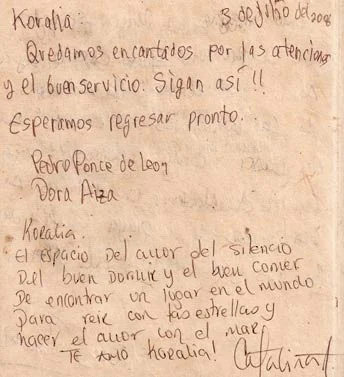 Koralia:
3 de Julio del 2008
Quedamos encantados por las atenciones
y el buen servicio. Sigan así !!
Esperamos regresar pronto.
Pedro Ponce de Leon
Dora Aiza
Koralia.
El espacio Del amor del silencio
Del buen Dormir y el buen comer
De encontrar un lugar en el mundo
Para reir con las estrellas y
hacer el amor con el mar
TE amo Koralia!
Catalina